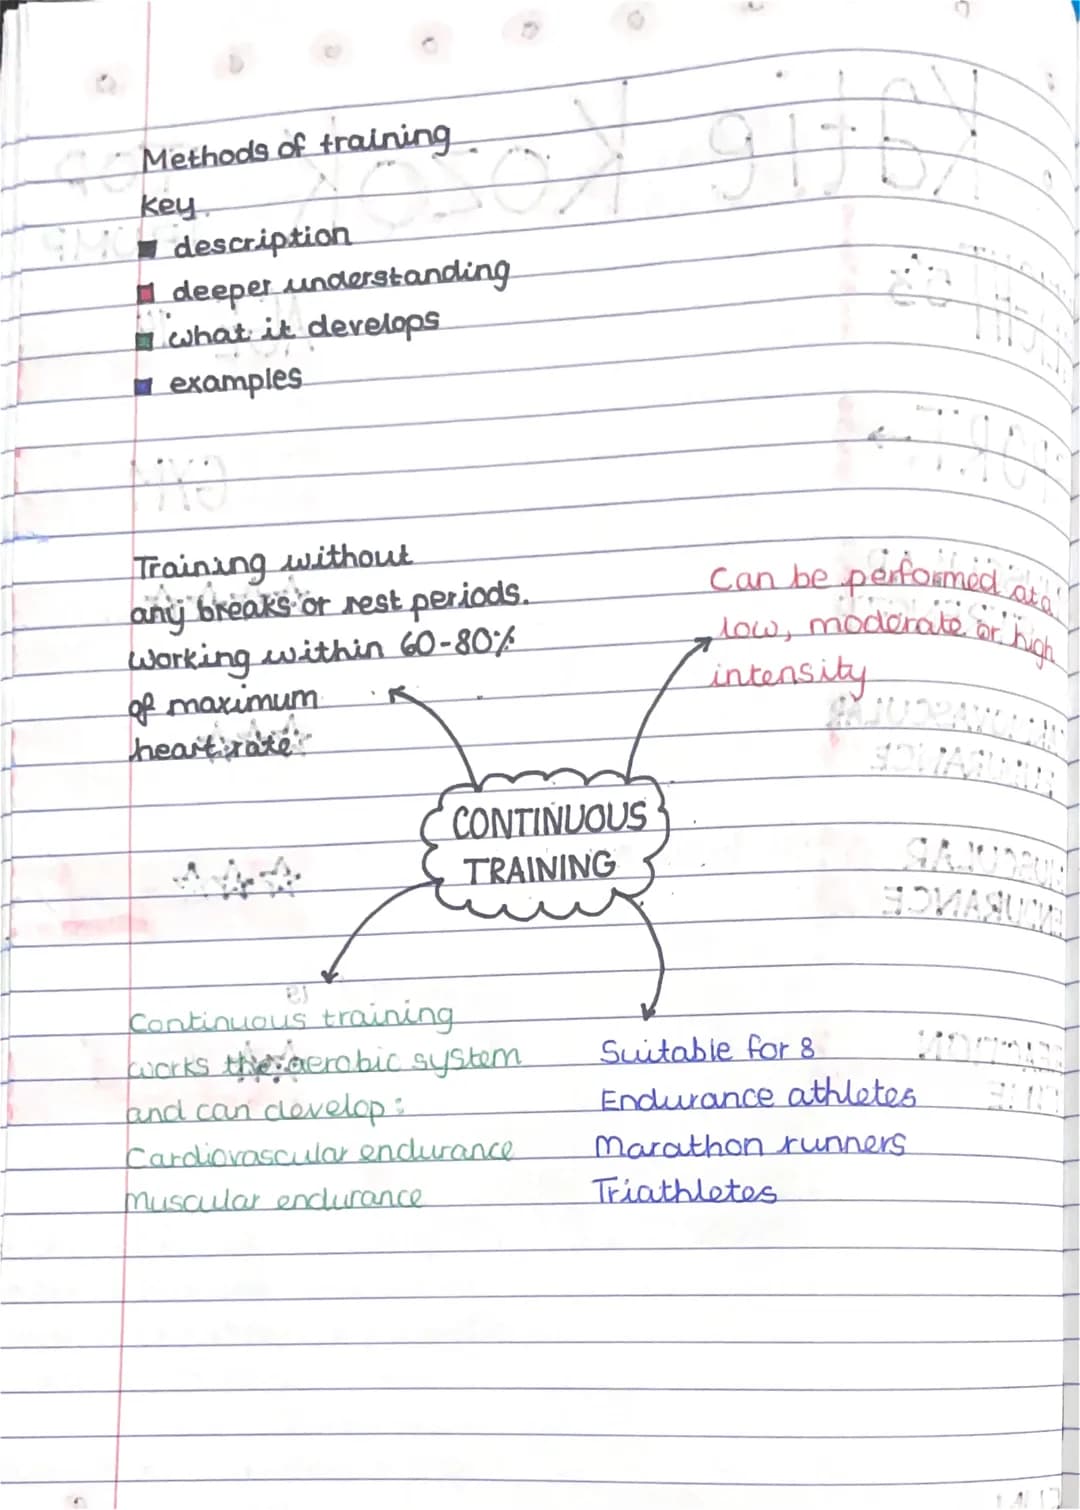 Methods of training
Key
description
deeper understanding
what it develops
examples
Training without
any breaks or rest periods.
Working within 60-80%
of maximum
heart rate
Can be performed at a
low, moderate or high
intensity
CONTINUOUS
TRAINING
Continuous training
works the aerobic system
and can develop:
Cardiovascular endurance
Muscular endurance
Suitable for 8
Endurance athletes
Marathon runners
Triathletes